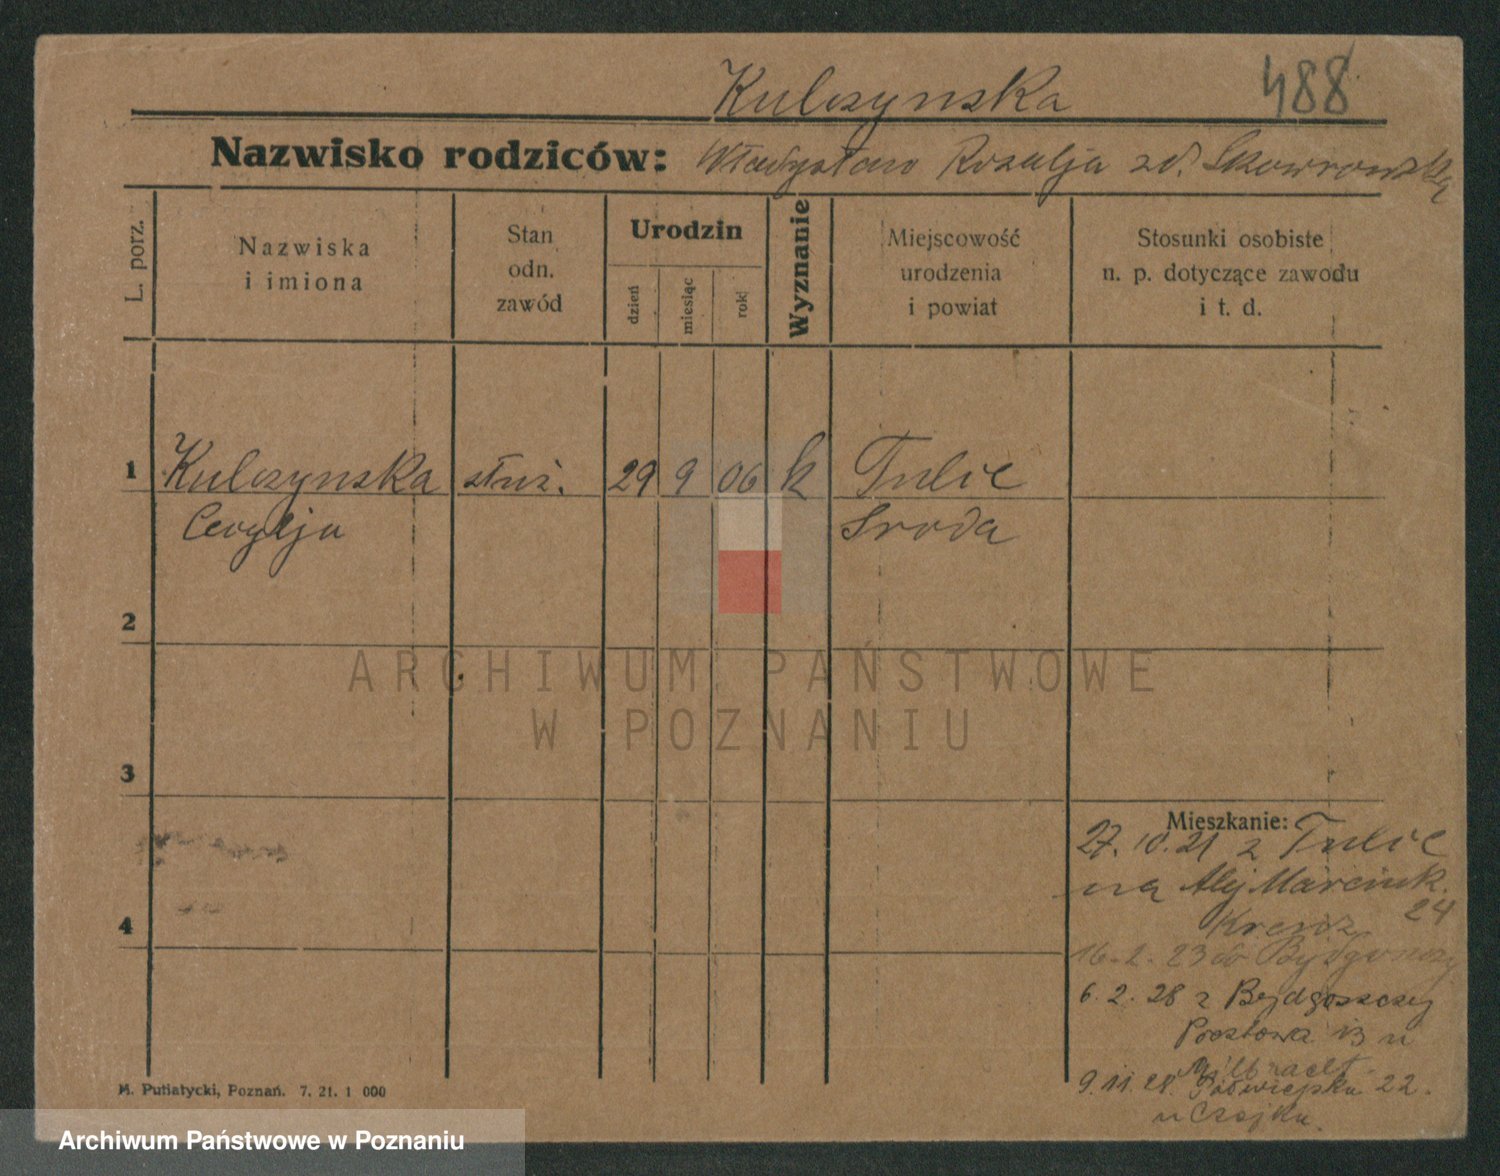 Kulczynska 488
Nazwisko rodziców: Władysław Rozalja zd. Skowrońska
L. porz.
Nazwiska
i imiona
Stan
odn.
zawód
Urodzin
dzień
miesiąc
rok
Wyznanie
Miejscowość
urodzenia
i powiat
Stosunki osobiste
n. p. dotyczące zawodu
i t. d.
1 Kulczynska służ. 29 9 06 k Tulce
Cecylja Sroda
2
ARCHIWUM PAŃSTWOWE
W POZNANIU
3
Mieszkanie:
27.10.21 z Tulce
na Alej Marcink.
24
16.2.23 do Bydgoszczy
6.2.28 z Bydgoszczy
Pocztowa 13 u
9.11.28. Półwiejska 22.
u Czajka.
4
M. Putiatycki, Poznań. 7. 21. 1 000
Archiwum Państwowe w Poznaniu